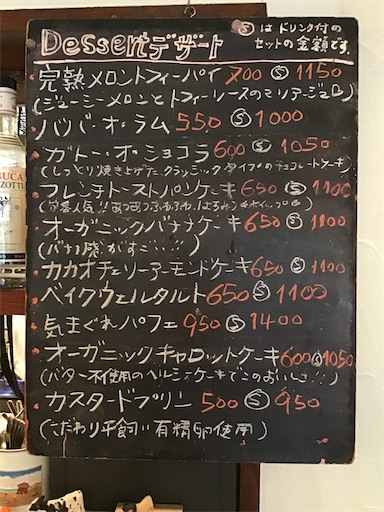 Dessert デザート
Ⓢは ドリンク付の
セットの金額です。
完熟メロントフィーパイ 700 Ⓢ 1150
(ジューシーメロンとトフィーソースのマリアージュ)
ババ・オ・ラム 550 Ⓢ 1000
ガトー・オ・ショコラ 600 Ⓢ 1050
(しっとり焼き上げたクラシックタイプのチョコレートケーキ)
フレンチトーストパンケーキ 650 Ⓢ 1100
オーガニックバナナケーキ 650 Ⓢ 1100
(バナナ感がすごい!!)
カカオチェリーアーモンドケーキ 650 Ⓢ 1100
ベイクウェルタルト 650 Ⓢ 1100
気まぐれパフェ 950 Ⓢ 1400
オーガニックキャロットケーキ 600 Ⓢ 1050
(バター不使用のヘルシーケーキでこのおいしさ!!)
カスタードプリン 500 Ⓢ 950
(こだわり平飼い有精卵使用)